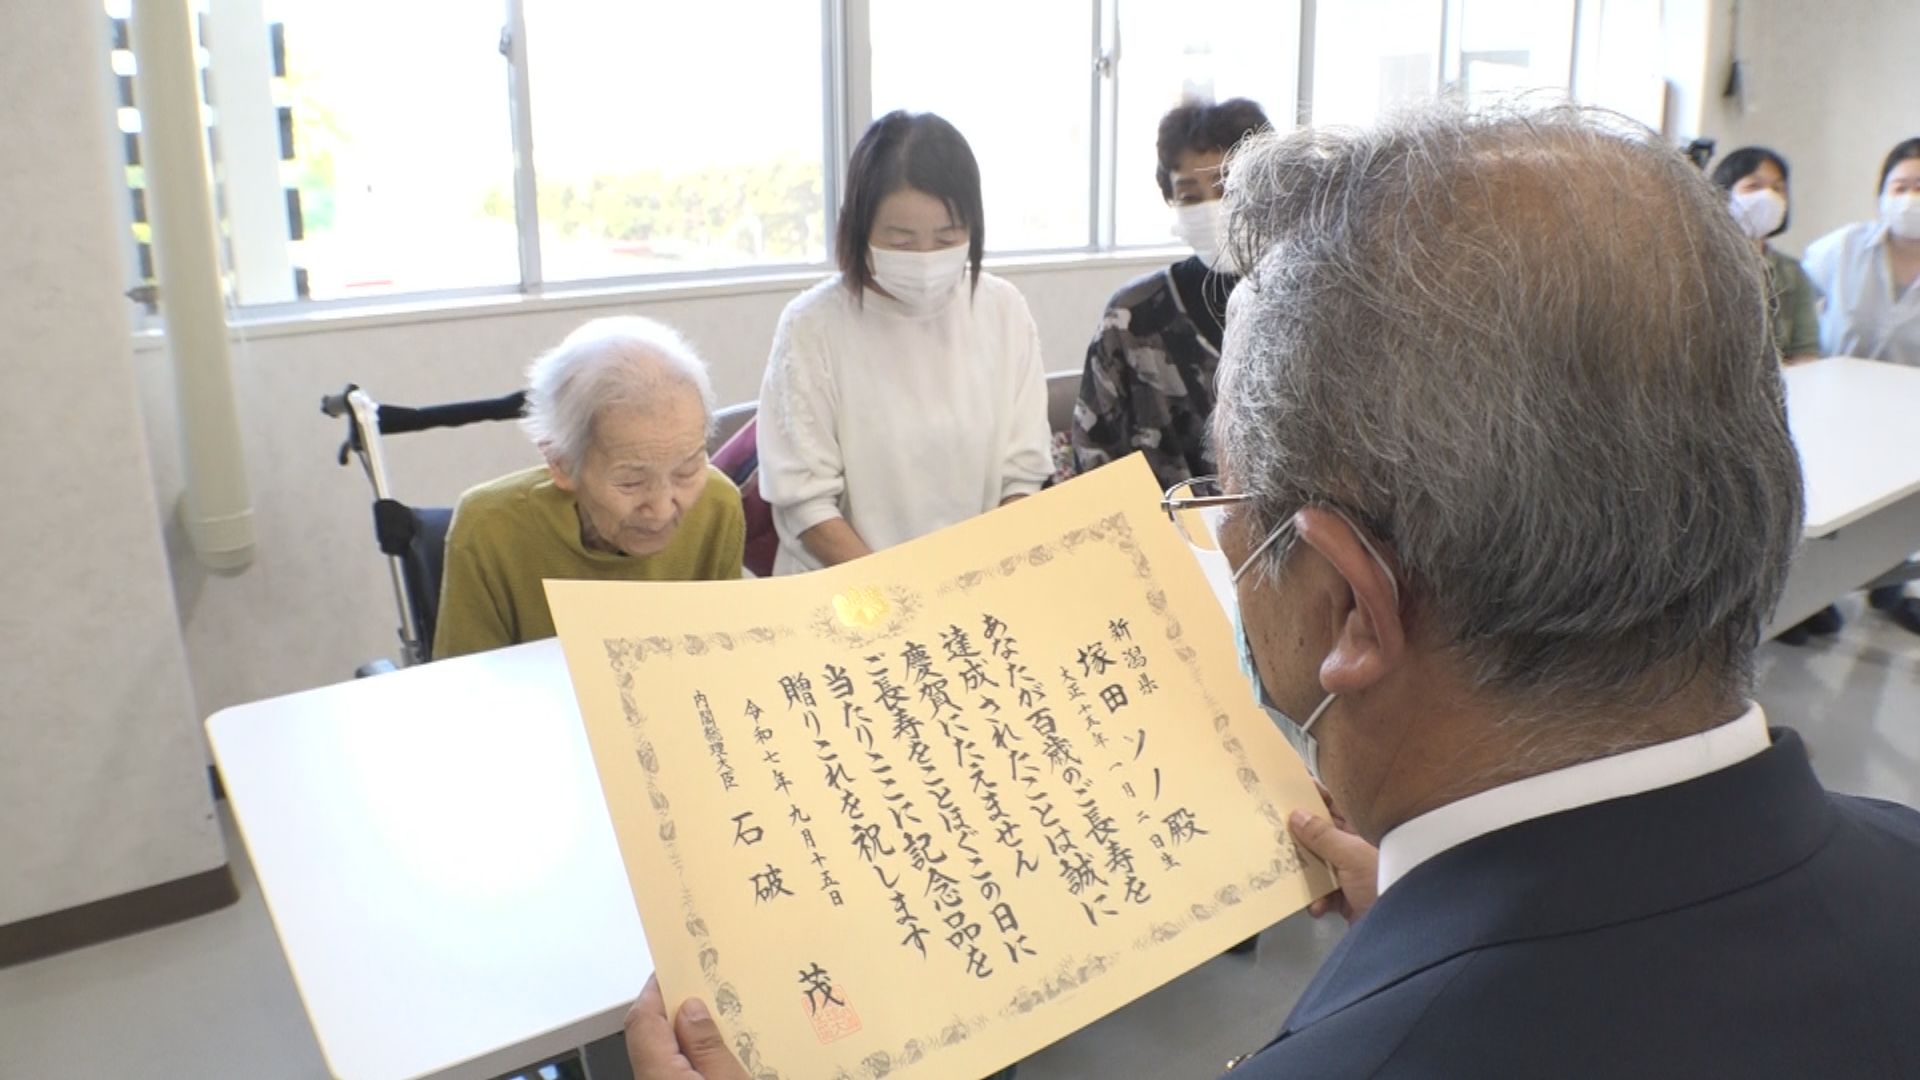 新潟県
塚田ソノ殿
大正十五年一月二日生
あなたが百歳のご長寿を
達成されたことは誠に
慶賀にたえません
ご長寿をことほぐこの日に
当たりここに記念品を
贈りこれを祝します
令和七年九月十五日
内閣総理大臣 石破 茂